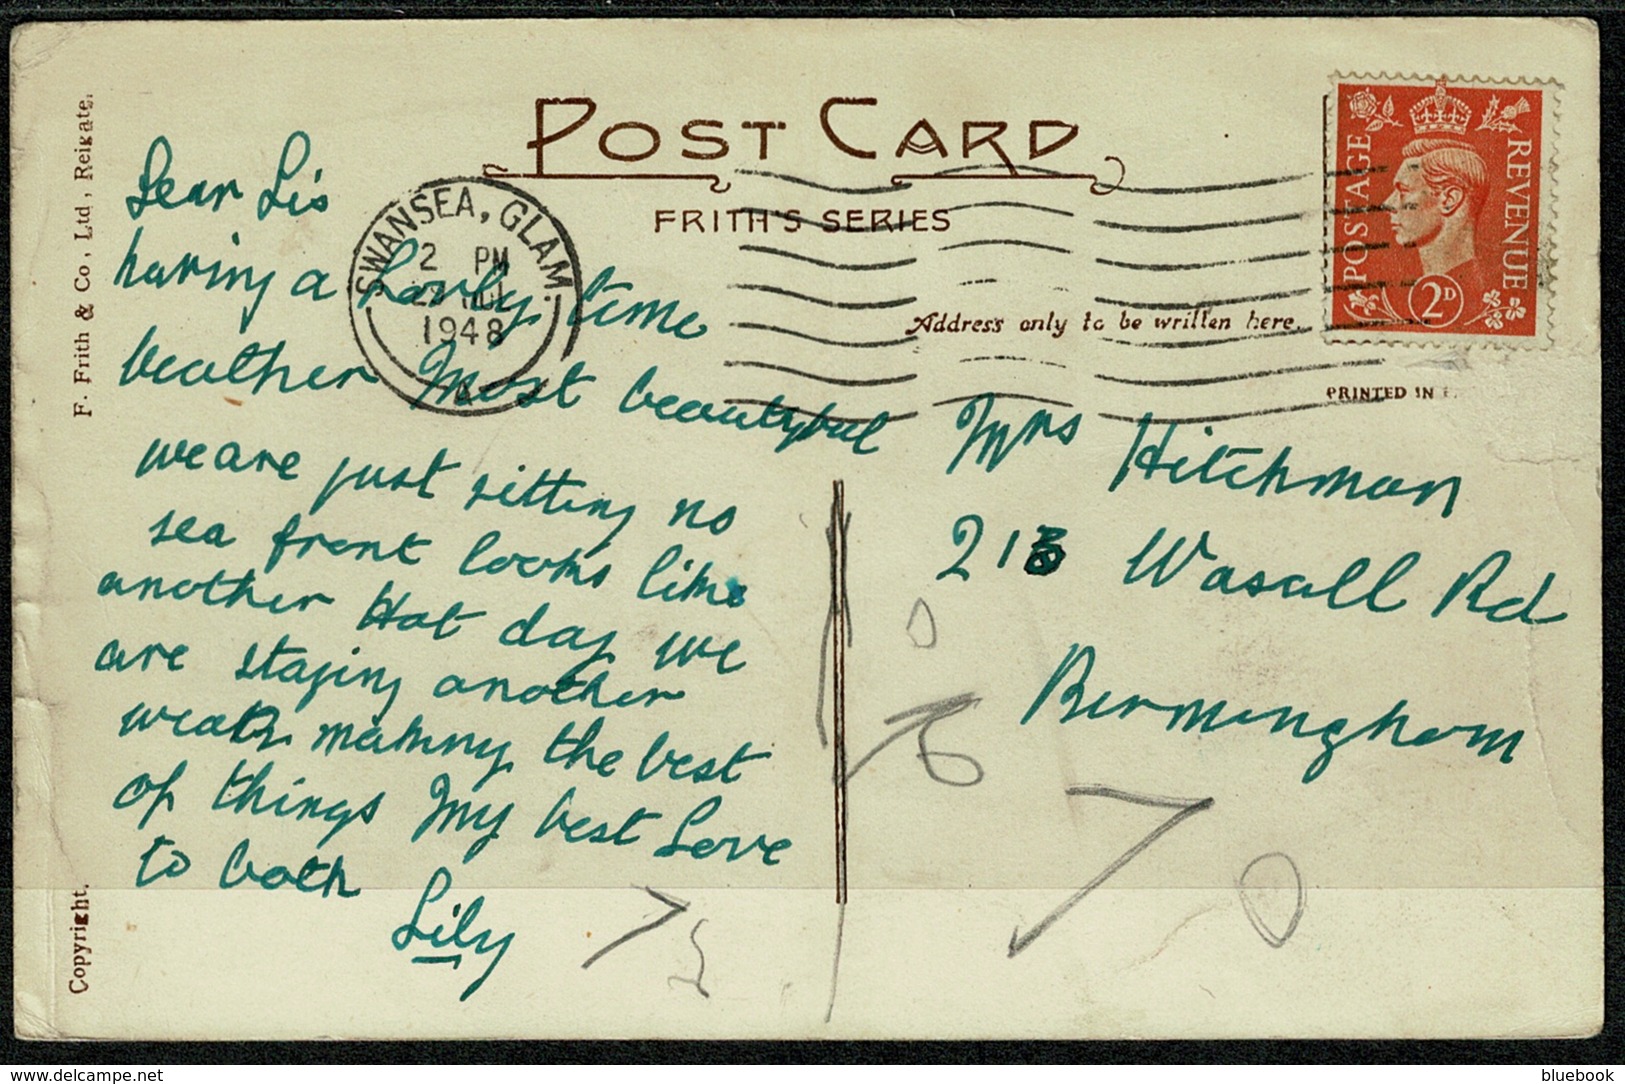 POST CARD
FRITH'S SERIES
F. Frith & Co., Ltd, Reigate.
Copyright.
SWANSEA, GLAM.
2 PM
JUL
1948
POSTAGE
REVENUE
2D
Address only to be written here.
PRINTED IN
Dear Lis
having a Lovly time
weather Most beautyful
we are just sitting no
sea front looks like
another Hot day we
are staying another
weak making the best
of things My best Love
to both
Lily
Mrs Hitchman
213 Wasall Rd
Birmingham
70
bluebook